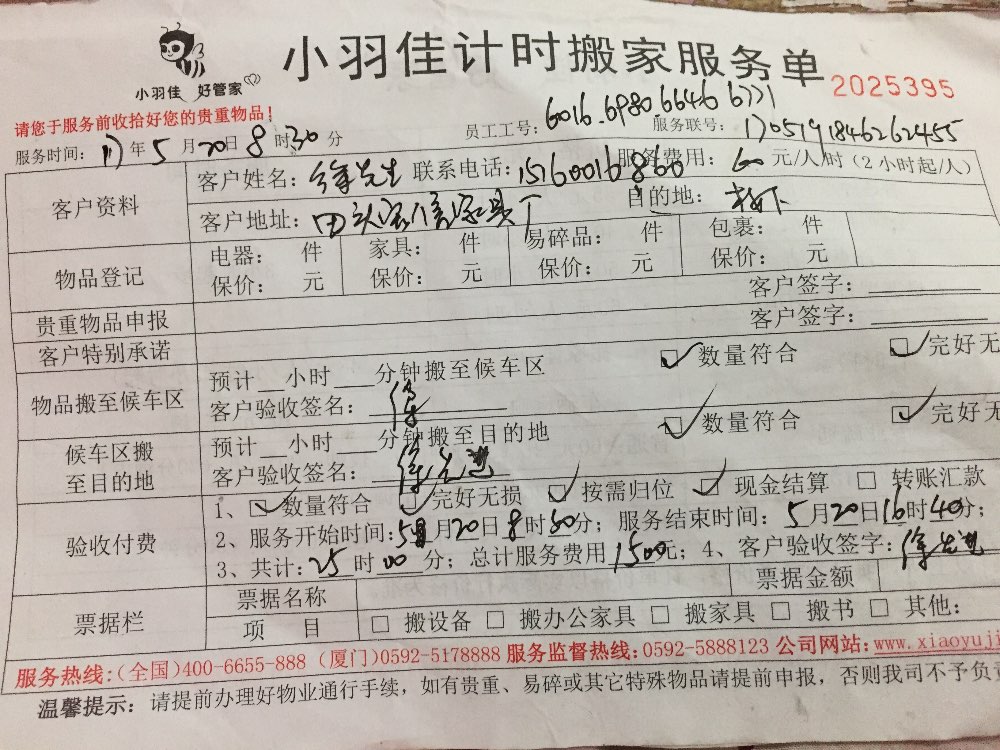 小羽佳 好管家
小羽佳计时搬家服务单
2025395
请您于服务前收拾好您的贵重物品!
员工工号: 6016.6980.6646 6771
服务时间: 17年5月20日8时30分
服务联号: 1705191846262455
客户资料
客户姓名: 徐先生 联系电话: 15160016860 服务费用: 60元/人/时(2小时起/人)
客户地址: 目的地: 梅下
物品登记
电器: 件 家具: 件 易碎品: 件 包裹: 件
保价: 元 保价: 元 保价: 元 保价: 元
贵重物品申报
客户签字:
客户特别承诺
客户签字:
物品搬至候车区
预计__小时___分钟搬至候车区 数量符合 完好无
客户验收签名: 徐
候车区搬至目的地
预计__小时___分钟搬至目的地 数量符合 完好无
客户验收签名: 徐先生
验收付费
1、数量符合 完好无损 按需归位 现金结算 转账汇款
2、服务开始时间:5月20日8时30分; 服务结束时间: 5月20日16时40分;
3、共计: 25时00分; 总计服务费用1500元; 4、客户验收签字: 徐先生
票据栏
票据名称 票据金额
项 目 搬设备 搬办公家具 搬家具 搬书 其他:
服务热线:(全国)400-6655-888 (厦门)0592-5178888 服务监督热线:0592-5888123 公司网站:www.xiaoyujj
温馨提示: 请提前办理好物业通行手续,如有贵重、易碎或其它特殊物品请提前申报,否则我司不予负责